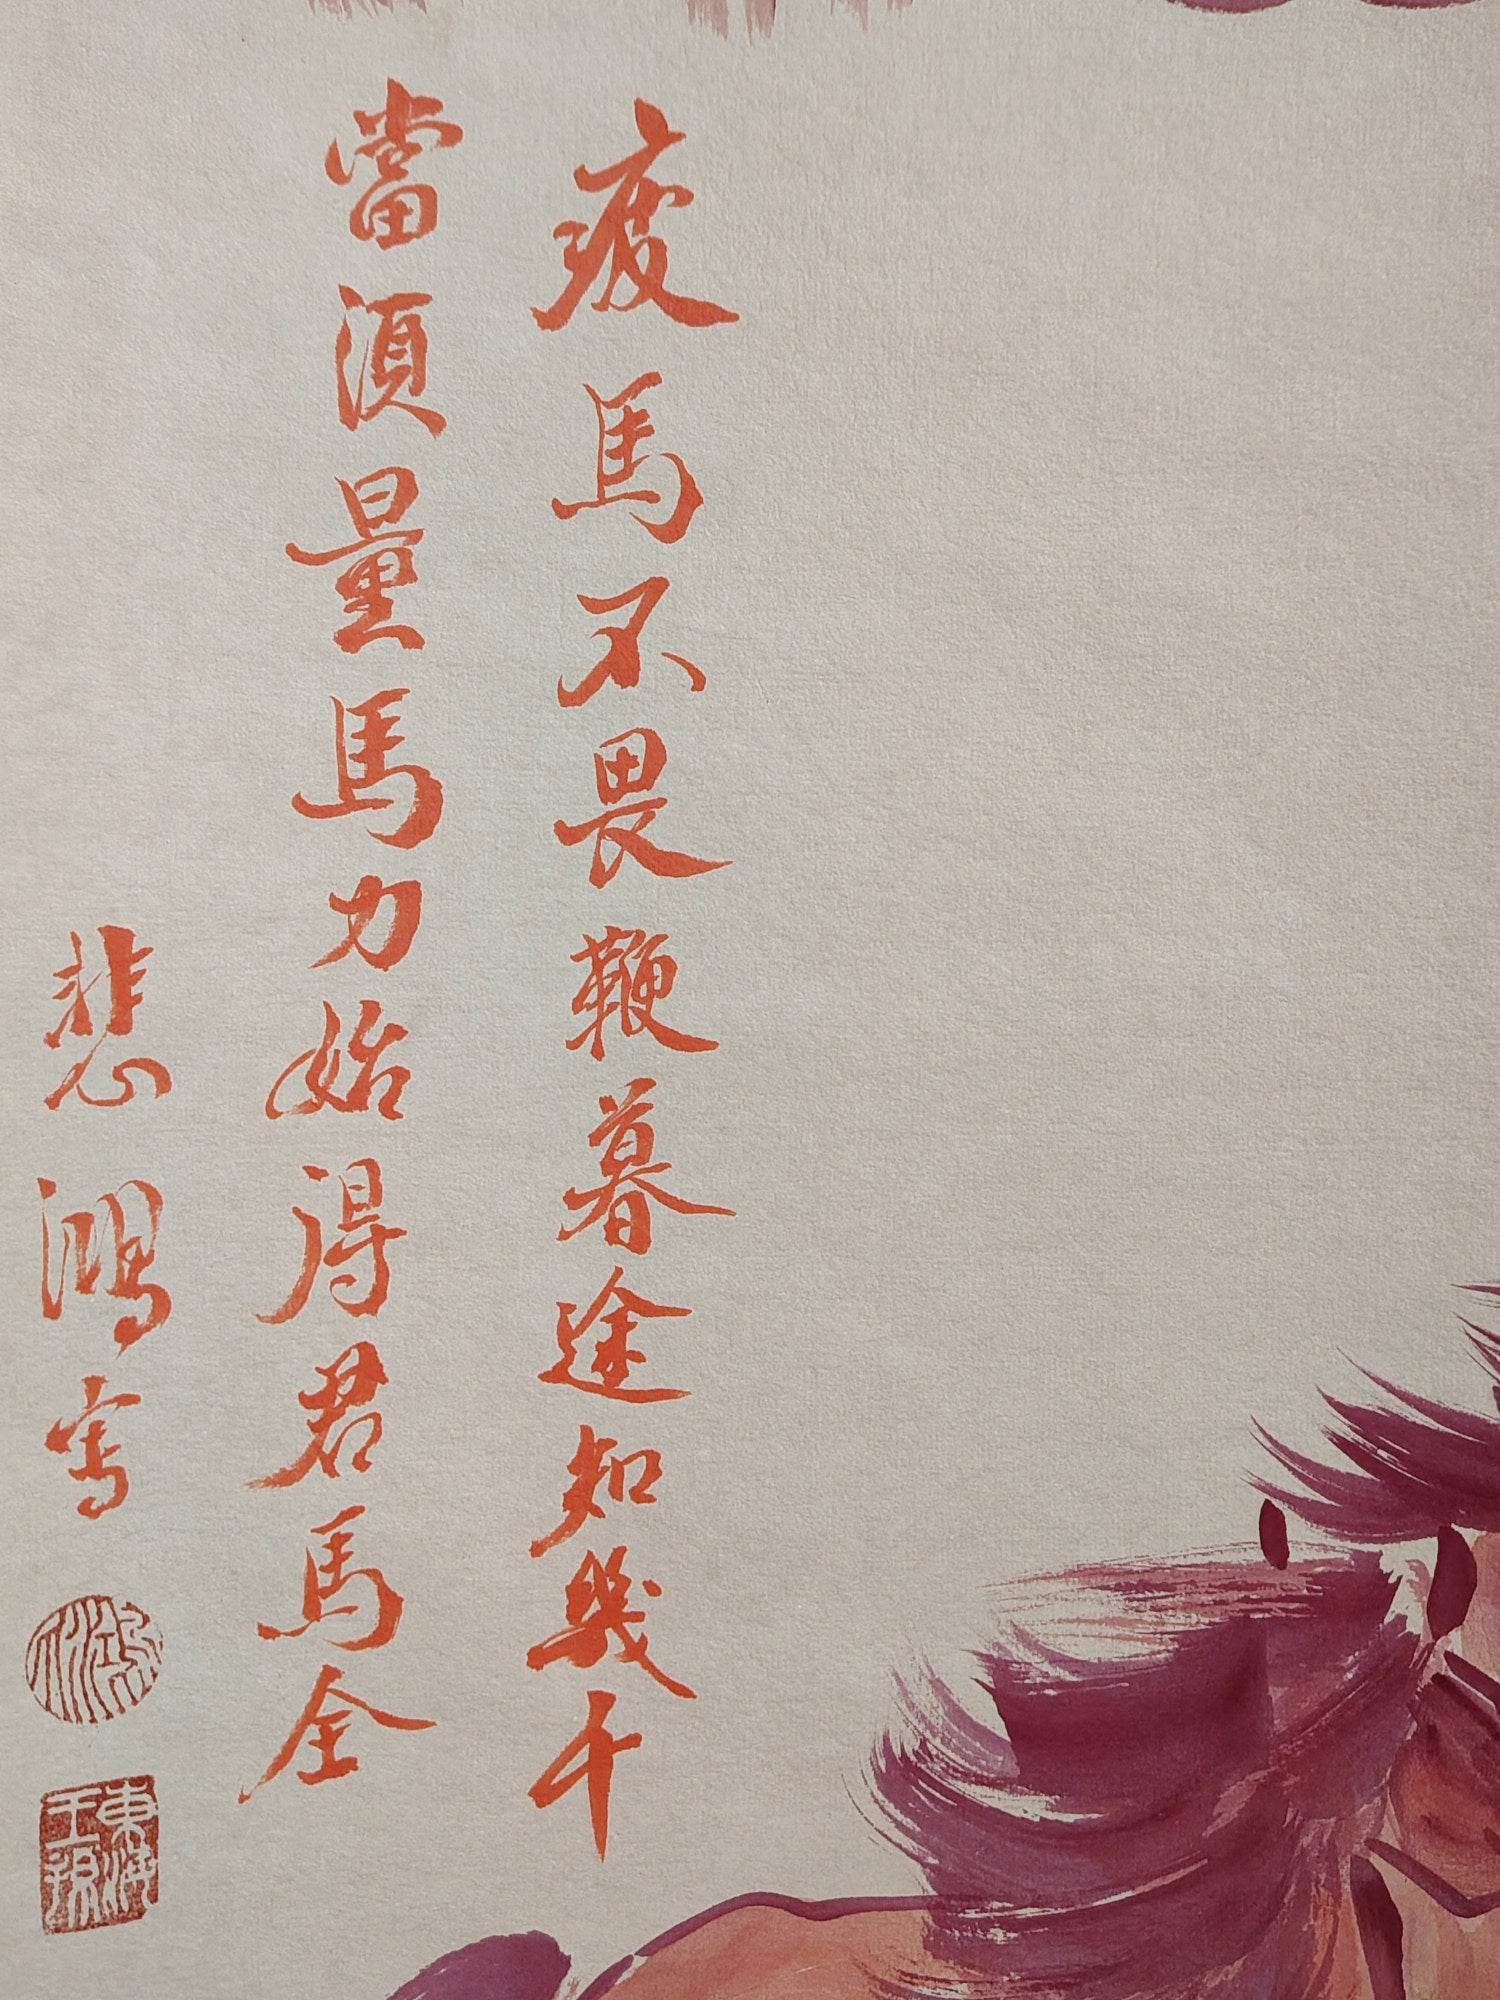 疲馬不畏鞭暮途知幾千
當須量馬力始得君馬全
悲鴻寫
鴻
東海王孫